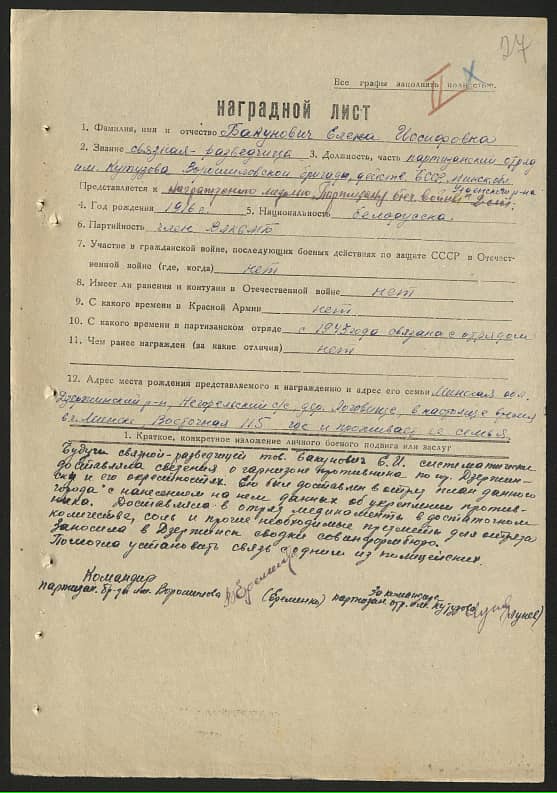 27
Все графы заполнять полностью.
V X
НАГРАДНОЙ ЛИСТ
1. Фамилия, имя и отчество Бакунович Елена Иосифовна
2. Звание связная-разведчица 3. Должность, часть партизанский отряд
им. Кутузова Ворошиловской бригады, действ. БССР, Минской
Узденский р-на
Представляется к награждению медалью "Партизану Отеч. войны"
4. Год рождения 1916 г. 5. Национальность белорусска
6. Партийность член ВЛКСМ
7. Участие в гражданской войне, последующих боевых действиях по защите СССР и Отечест-
венной войне (где, когда) нет
8. Имеет ли ранения и контузии в Отечественной войне нет
9. С какого времени в Красной Армии нет
10. С какого времени в партизанском отряде с 1942 года связана с отрядом
11. Чем ранее награжден (за какие отличия) нет
12. Адрес места рождения представляемого к награждению и адрес его семьи Минская обл.
Дзержинский р-н, Негорельский с/с, дер. Логовище, в настоящее время
в г. Минск Восточная 115 где и проживает ее семья.
1. Краткое, конкретное изложение личного боевого подвига или заслуг
Будучи связной-разведчицей тов. Бакунович Е.И. систематически
доставляла сведения о гарнизоне противника по гор. Дзержин-
ску и его окрестностях. Ею был доставлен в отряд план данного
города с нанесением на нем данных об укреплении против-
ника. Доставляла в отряд медикаменты в достаточном
количестве, соль и прочие необходимые предметы для отряда
Заносила в Дзержинск сводки совинформбюро.
Помогла установить связь с одним из полицейских.
Командир
партизан. бр-ды им. Ворошилова (Еременко)
За командира
партизан. отр. им. Кутузова